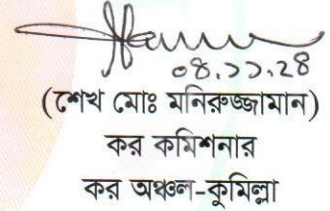 ০৪.১১.২৪
(শেখ মোঃ মনিরুজ্জামান)
কর কমিশনার
কর অঞ্চল-কুমিল্লা